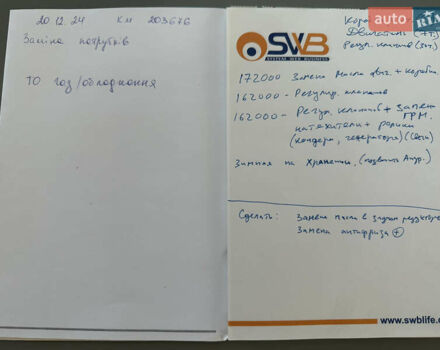 20.12.24 КМ 203676
Заміна патрубків
ТО год/обладнання
auto RIA
SWB
SYSTEM WEB BUSINESS
Двигатель (7л)
Регул. клапанов
172000 Замена масла двиг. + коробка
162000 - Регулир. клапанов
162000 - Регул. клапанов + Замен
ГРМ.
натяжители + ролики
(кондера, генератора)
Зимняя на Хранении, (позвонить
Сделать: Замена масла в заднем редукторе
Замена антифриза +
www.swblife.c